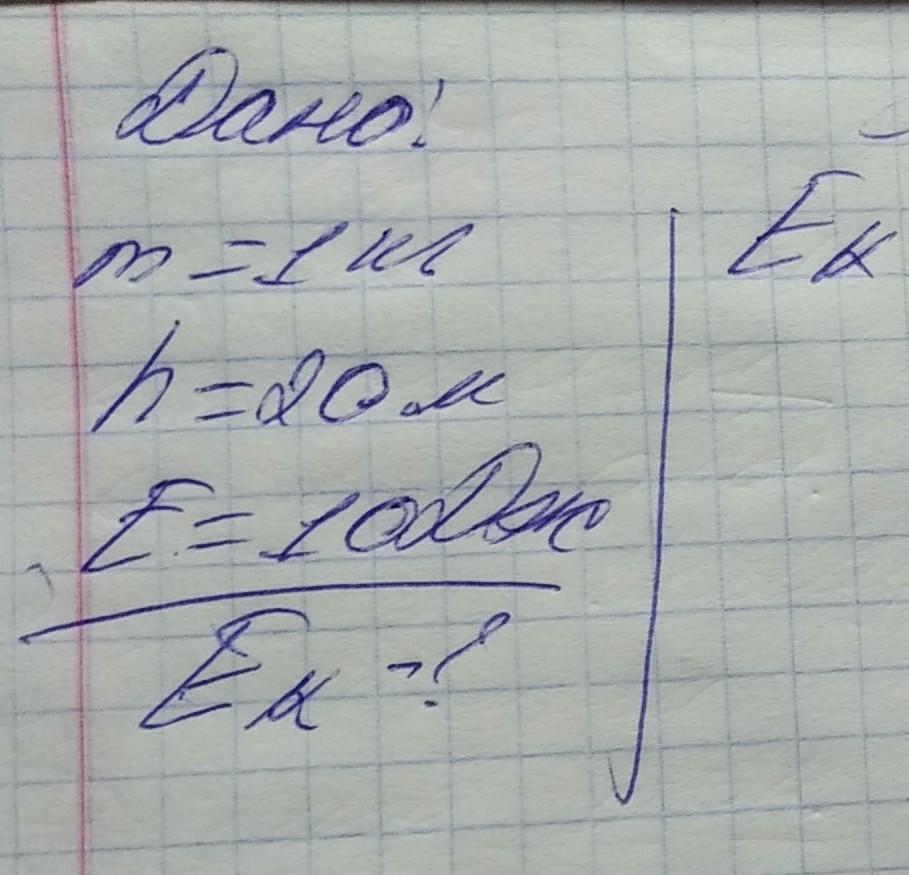 Дано:
m = 1 кг
h = 20 м
E = 10 Дж
Eк - ?
Eк